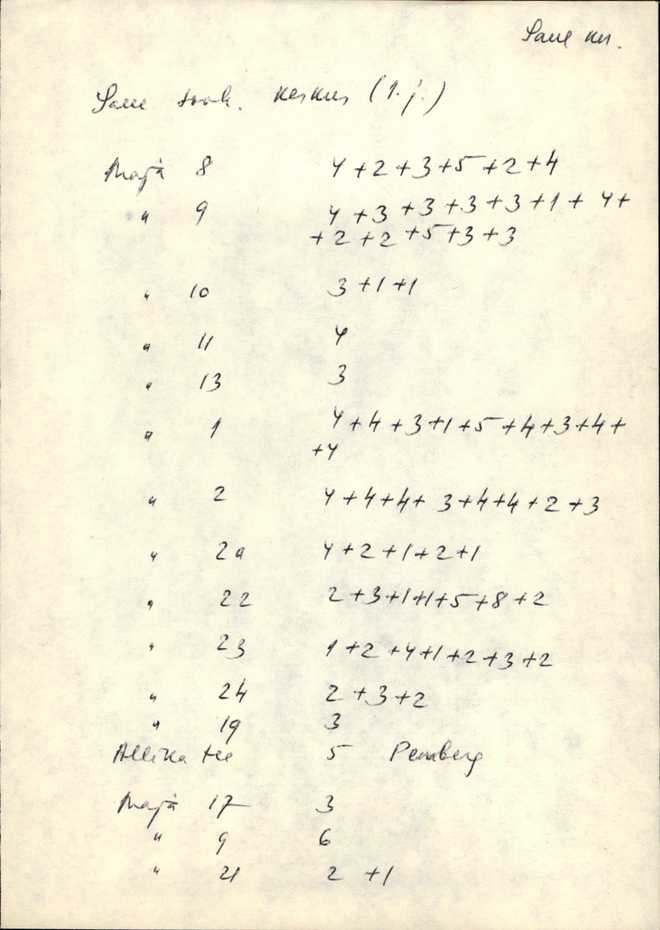 Saue kes.
Saue sovh. keskus (1. j.)
Maja 8 4+2+3+5+2+4
" 9 4+3+3+3+3+1+4+
+2+2+5+3+3
" 10 3+1+1
" 11 4
" 13 3
" 1 4+4+3+1+5+4+3+4+
+4
" 2 4+4+4+3+4+4+2+3
" 2a 4+2+1+2+1
" 22 2+3+1+1+5+8+2
" 23 1+2+4+1+2+3+2
" 24 2+3+2
" 19 3
Allika tee 5 Pemberg
Maja 17 3
" 9 6
" 21 2+1